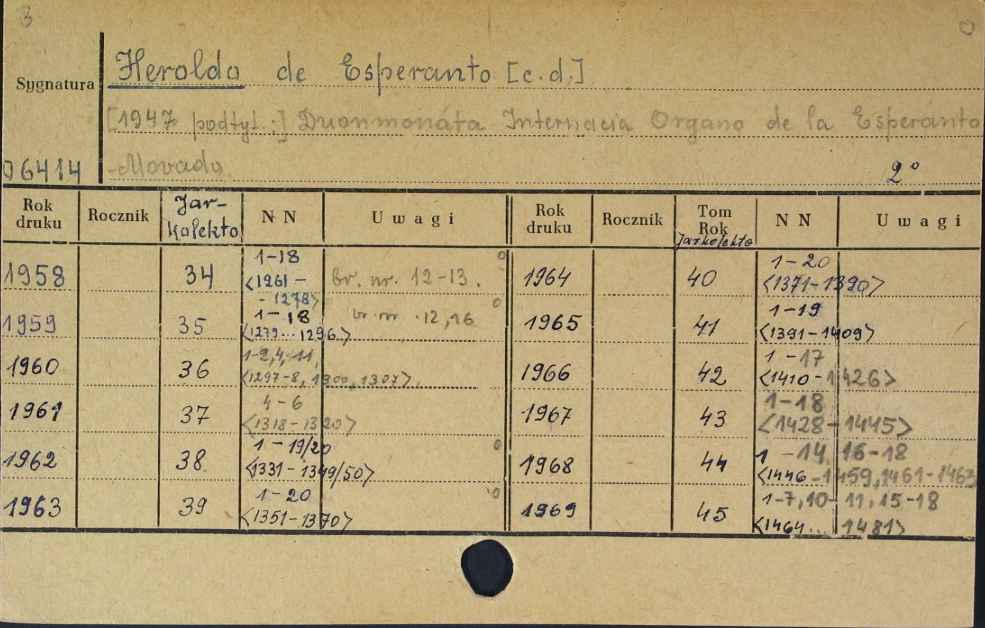 3
Sygnatura
Heroldo de Esperanto [c.d.]
[1947 podtyt.:] Duonmonata Internacia Organo de la Esperanto
-Movado.
06414
2°
Rok druku Rocznik Jar-kolekto NN Uwagi Rok druku Rocznik Tom Rok Jarkolekto NN Uwagi
1958 34 1-18 <1261 - - 1278> br. nr. 12-13. 1964 40 1-20 <1371-1390>
1959 35 1-18 <1279... 1296> br. nr. 12,16 1965 41 1-19 <1391-1409>
1960 36 1-2,4,-11, <1297-8, 1300, 1307>. 1966 42 1-17 <1410-1426>
1961 37 4-6 <1318-1320> 1967 43 1-18 <1428-1445>
1962 38 1-19/20 <1331-1349/50> 1968 44 1-14, 16-18 <1446-1459,1461-1463
1963 39 1-20 <1351-1370> 1969 45 1-7,10-11,15-18 <1464... 1481>